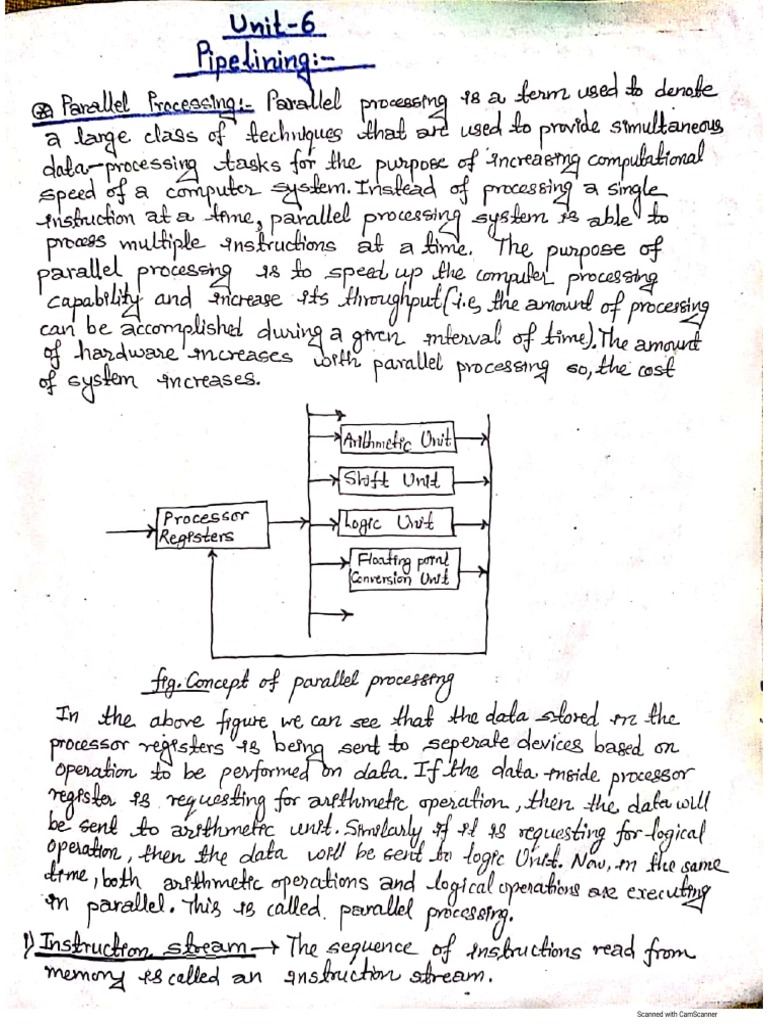 Unit-6
Pipelining:-
Parallel Processing:- Parallel processing is a term used to denote
a large class of techniques that are used to provide simultaneous
data-processing tasks for the purpose of increasing computational
speed of a computer system. Instead of processing a single
instruction at a time, parallel processing system is able to
process multiple instructions at a time. The purpose of
parallel processing is to speed up the computer processing
capability and increase its throughput (i.e, the amount of processing
can be accomplished during a given interval of time). The amount
of hardware increases with parallel processing so, the cost
of system increases.
Arithmetic Unit
Shift Unit
Processor
Registers
Logic Unit
Floating point
Conversion Unit
fig. Concept of parallel processing
In the above figure we can see that the data stored in the
processor registers is being sent to seperate devices based on
operation to be performed on data. If the data inside processor
register is requesting for arithmetic operation, then the data will
be sent to arithmetic unit. Similarly if it is requesting for logical
operation, then the data will be sent to logic Unit. Now, in the same
time, both arithmetic operations and logical operations are executing
in parallel. This is called parallel processing.
1) Instruction stream → The sequence of instructions read from
memory is called an instruction stream.
Scanned with CamScanner